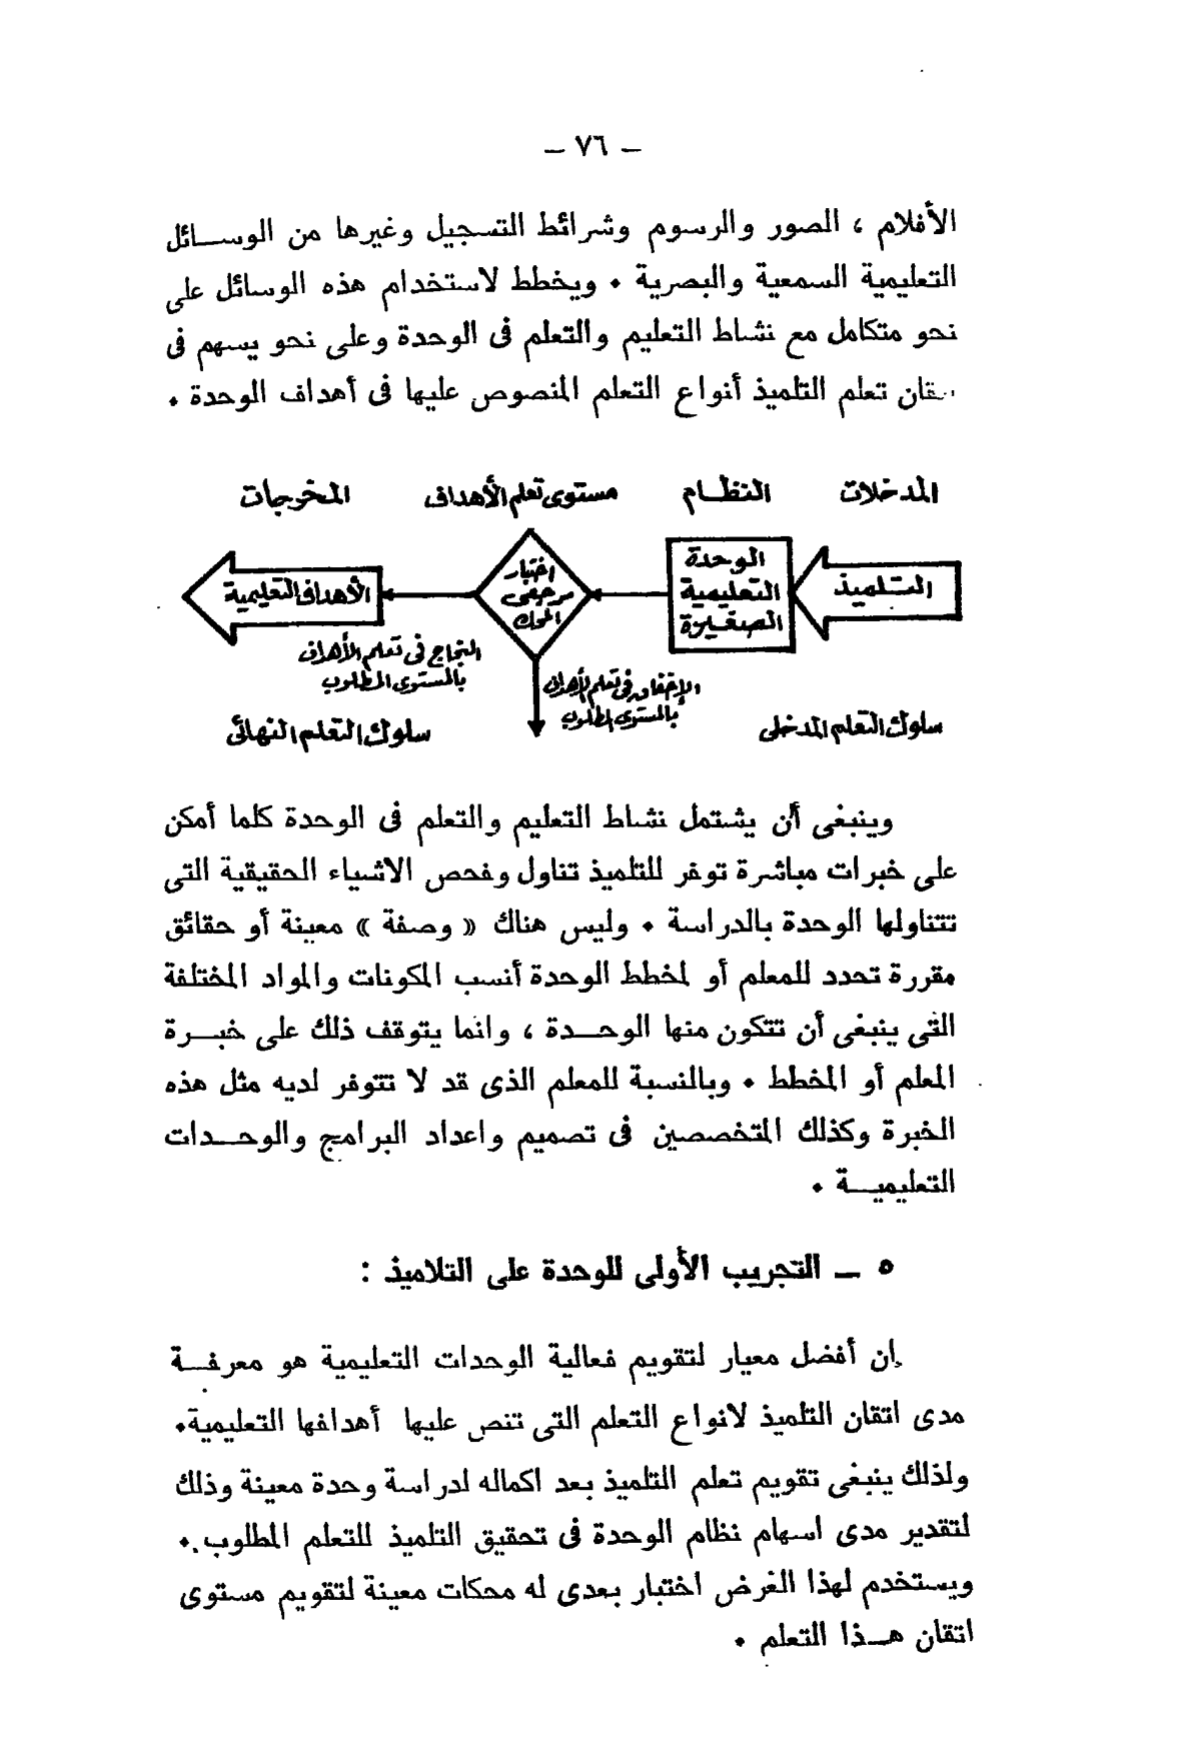 – ٧٦ –
الأفلام ، الصور والرسوم وشرائط التسجيل وغيرها من الوسـائل
التعليمية السمعية والبصرية ٠ ويخطط لاستخدام هذه الوسائل على
نحو متكامل مع نشاط التعليم والتعلم فى الوحدة وعلى نحو يسهم فى
تعلم التلميذ أنواع التعلم المنصوص عليها فى أهداف الوحدة ٠
المدخلات
النظـام
مستوى تعلم الأهداف
المخرجات
التـلميذ
الوحدة
التعليمية
الصغيرة
اختبار
مرجعى
المحك
الأهداف التعليمية
النجاح فى تعلم الأهداف
بالمستوى المطلوب
الإخفاق فى تعلم الأهداف
بالمستوى المطلوب
سلوك التعلم المدخلى
سلوك التعلم النهائى
وينبغى أن يشتمل نشاط التعليم والتعلم فى الوحدة كلما أمكن
على خبرات مباشرة توفر للتلميذ تناول وفحص الاشياء الحقيقية التى
تتناولها الوحدة بالدراسة ٠ وليس هناك « وصفة » معينة أو حقائق
مقررة تحدد للمعلم أو لمخطط الوحدة أنسب المكونات والمواد المختلفة
التى ينبغى أن تتكون منها الوحـدة ، وانما يتوقف ذلك على خبـرة
المعلم أو المخطط ٠ وبالنسبة للمعلم الذى قد لا تتوفر لديه مثل هذه
الخبرة وكذلك المتخصصين فى تصميم واعداد البرامج والوحـدات
التعليميـة ٠
٥ – التجريب الأولى للوحدة على التلاميذ :
ان أفضل معيار لتقويم فعالية الوحدات التعليمية هو معرفـة
مدى اتقان التلميذ لانواع التعلم التى تنص عليها أهدافها التعليمية٠
ولذلك ينبغى تقويم تعلم التلميذ بعد اكماله لدراسة وحدة معينة وذلك
لتقدير مدى اسهام نظام الوحدة فى تحقيق التلميذ للتعلم المطلوب ٠
ويستخدم لهذا الغرض اختبار بعدى له محكات معينة لتقويم مستوى
اتقان هـذا التعلم ٠